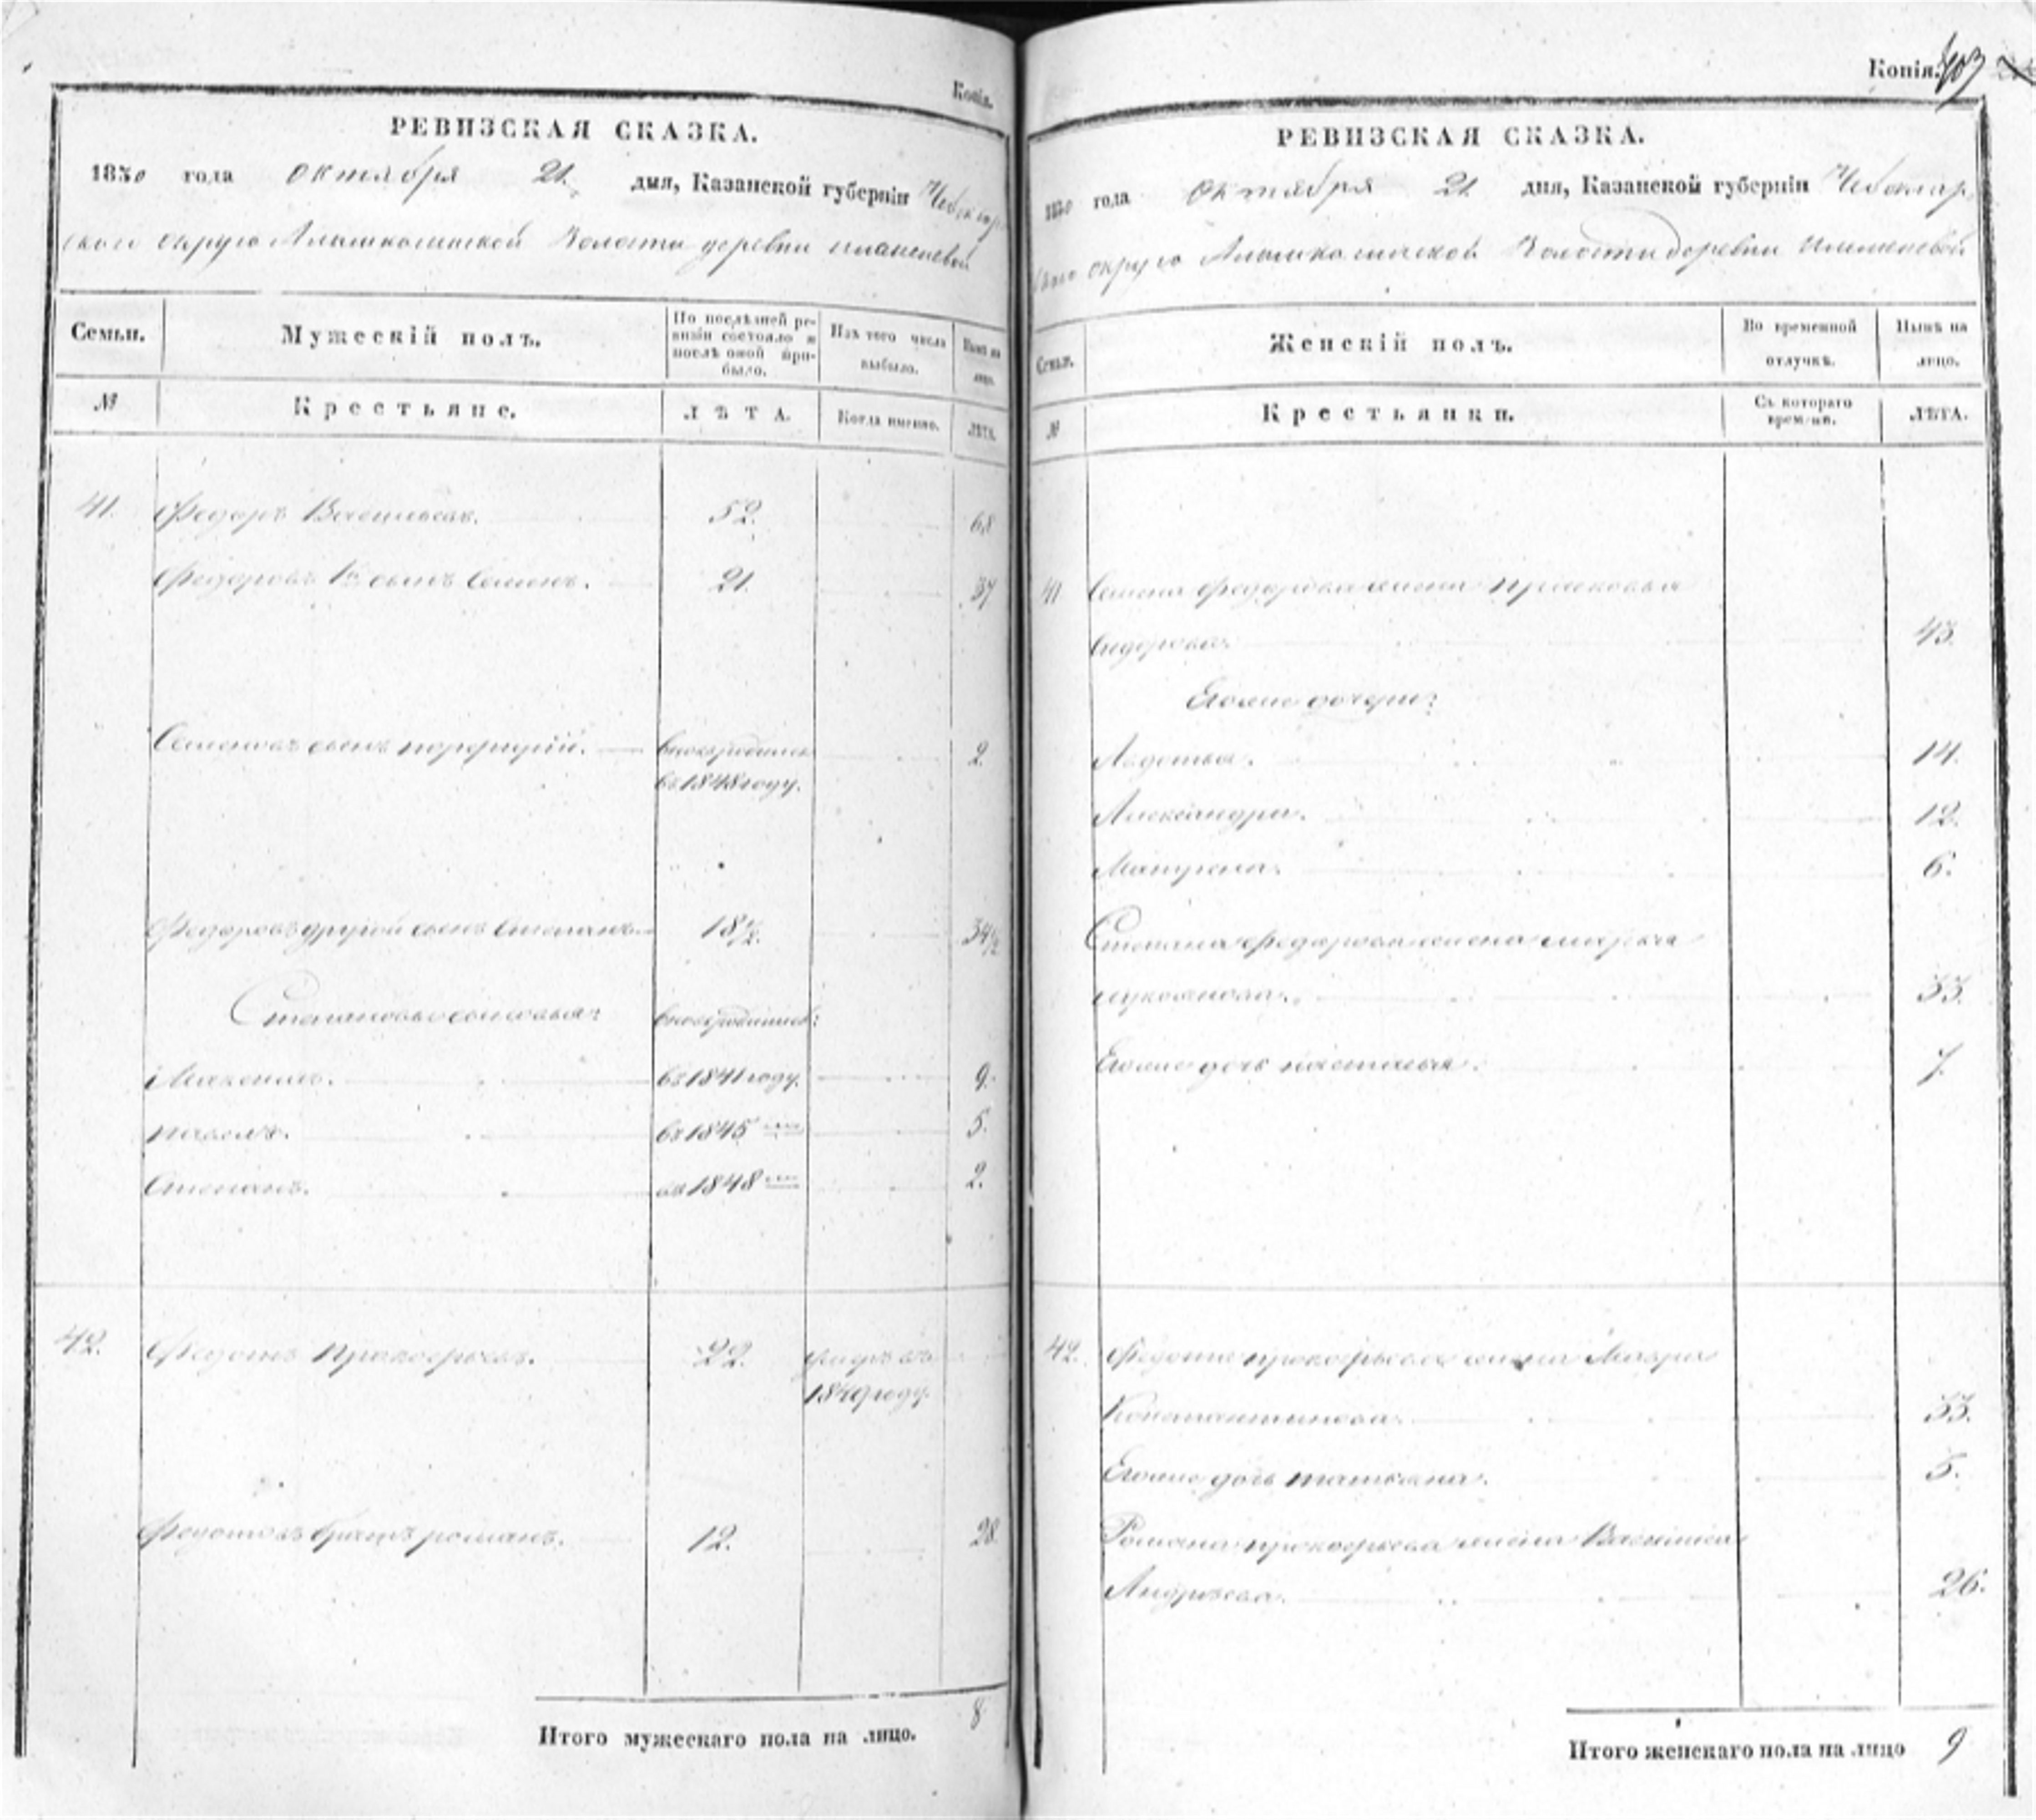 Копія.
РЕВИЗСКАЯ СКАЗКА.
1850 года октября 21 дня, Казанской губерніи Чебоксар
скаго округа Волости деревни
Семьи. Мужескій полъ. По послѣдней ревизіи состояло и послѣ оной прибыло. Изъ того числа выбыло. Нынѣ на лицо.
№ Крестьяне. ЛѢТА. Когда именно. ЛѢТА.
41. Федоръ Васильевъ. 52. 68
Федоровъ 1й сынъ Семенъ. 21. 37
Семеновъ сынъ порфирій. вновьрожденъ 2.
въ 1848 году.
Федоровъ другой сынъ Степанъ 18½. 34½
Степановы сыновья: вновьрожденные:
Максимъ. въ 1841 году. 9.
павелъ. въ 1845 5.
Степанъ. въ 1848 2.
42. Федотъ Прокофьевъ. 22. умре въ
1849 году.
Федотовъ братъ романъ. 12. 28
Итого мужескаго пола на лицо. 8
Копія. 403
РЕВИЗСКАЯ СКАЗКА.
1850 года октября 21 дня, Казанской губерніи Чебоксар
скаго округа Волости деревни
Семьи. Женскій полъ. Во временной отлучкѣ. Нынѣ на лицо.
№ Крестьянки. Съ котораго времени. ЛѢТА.
41 Семена Федорова жена прасковья
Сидорова. 43.
Егоже дочери:
Авдотья. 14.
Александра. 12.
Матрена. 6.
Степана Федорова жена марья
лукоянова. 33.
Егоже дочь настасья. 7.
42. Федота прокофьева жена Мавра
Константинова. 33.
Егоже дочь татьяна. 5.
Романа прокофьева жена Василиса
Андрѣева. 26.
Итого женскаго пола на лицо 9